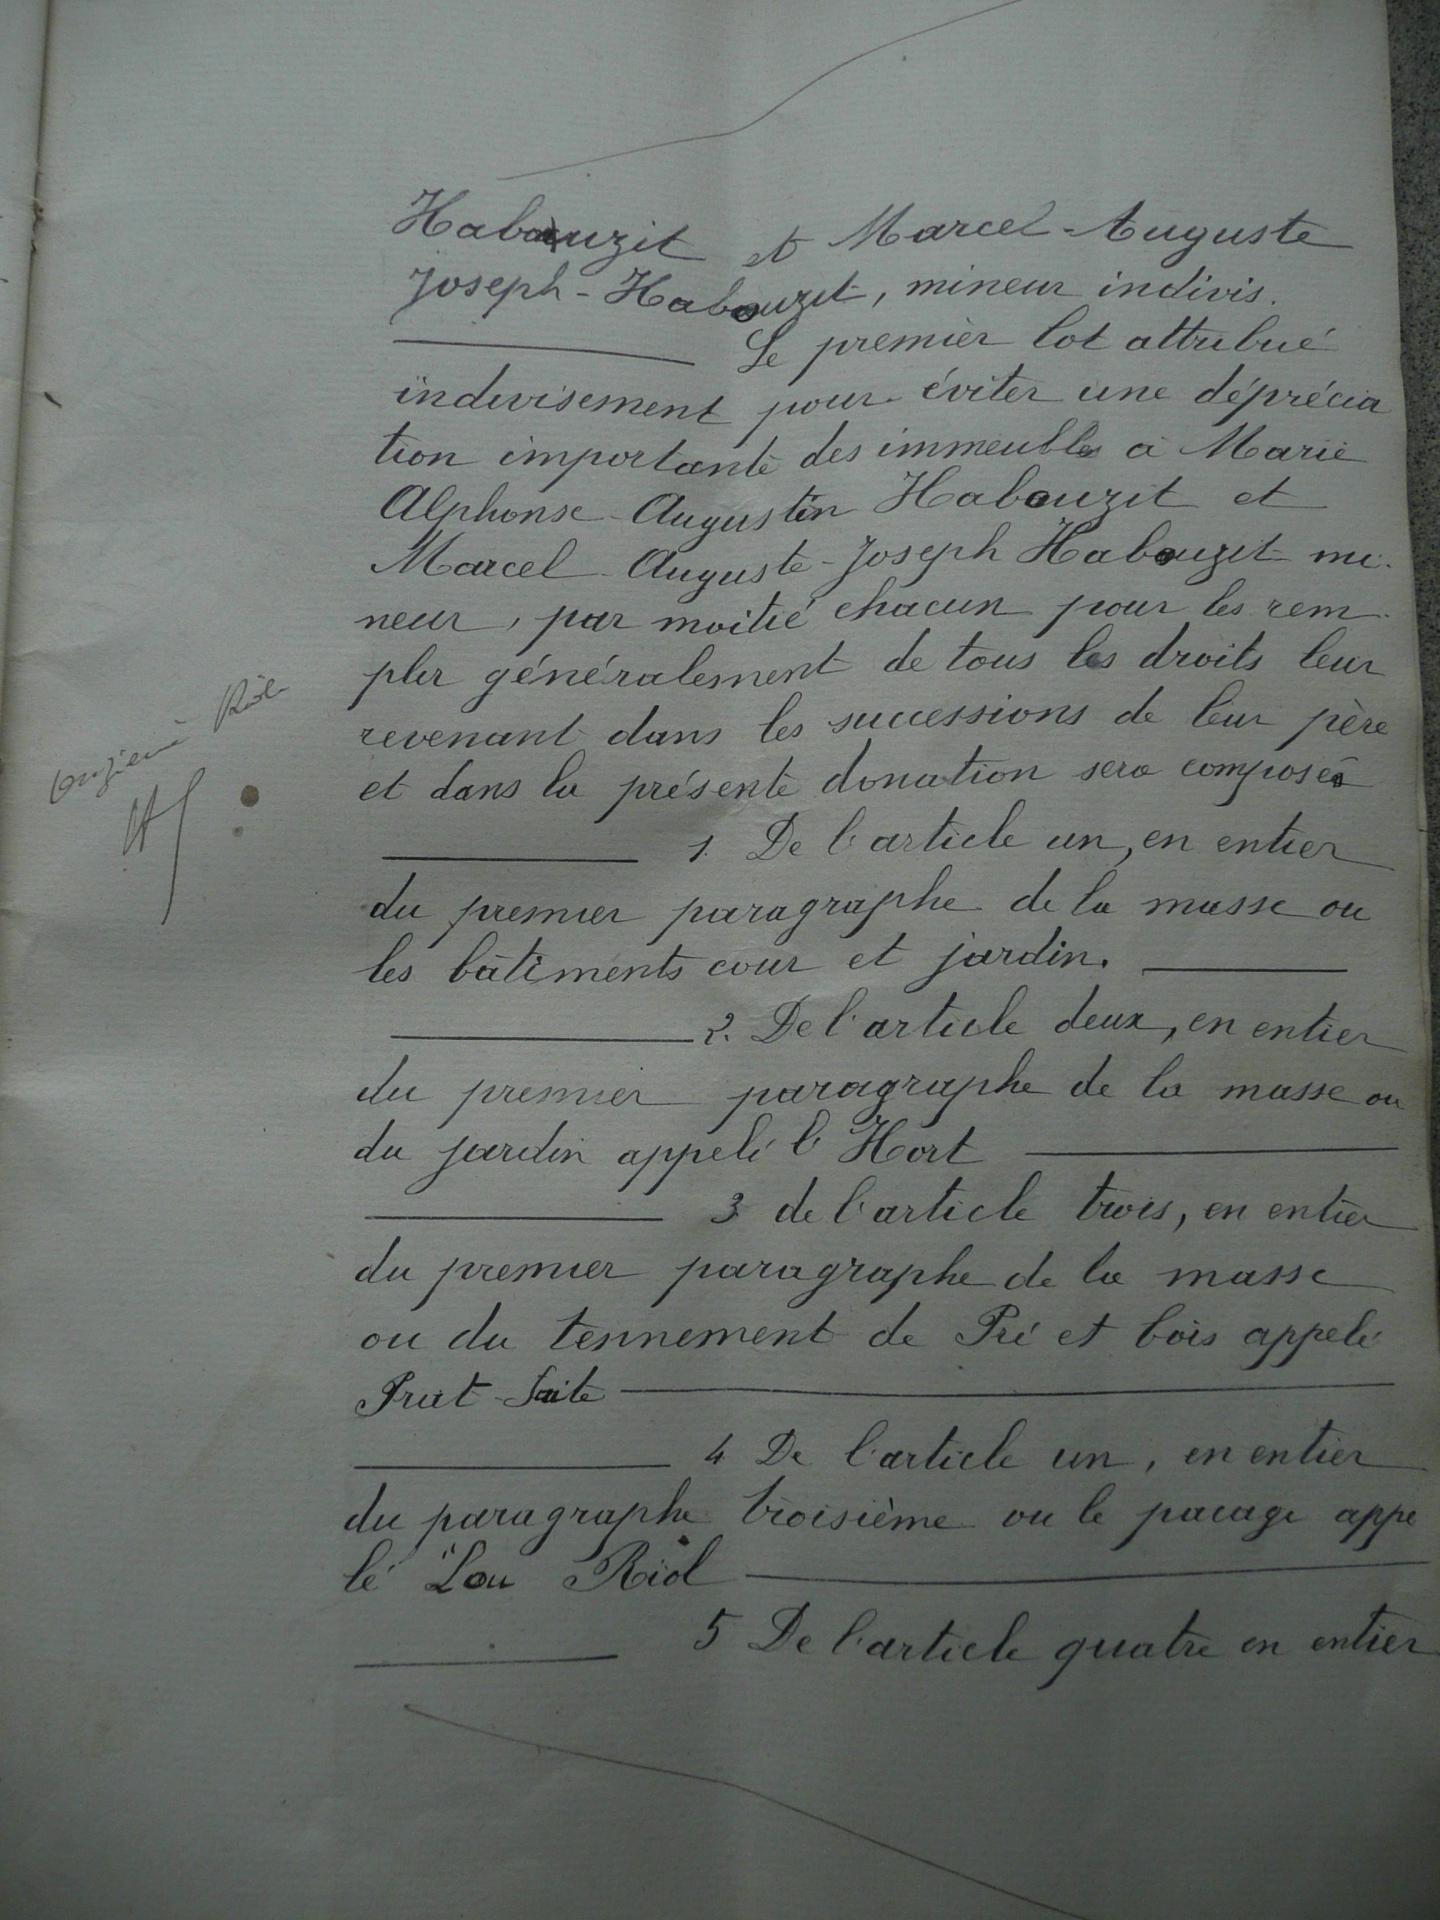 Habouzit et Marcel-Auguste
Joseph-Habouzit, mineur indivis.
Le premier lot attribué
indivisément pour éviter une déprécia
tion importante des immeubles à Marie
Alphonse-Augustin Habouzit et
Marcel-Auguste-Joseph Habouzit mi-
neur, par moitié chacun pour les rem-
plir généralement de tous les droits leur
revenant dans les successions de leur père
et dans la présente donation sera composé
1. De l'article un, en entier
du premier paragraphe de la masse ou
les bâtiments cour et jardin.
2. De l'article deux, en entier
du premier paragraphe de la masse ou
du jardin appelé l'Hort
3 de l'article trois, en entier
du premier paragraphe de la masse
ou du tennement de Pré et bois appelé
Prat
4 De l'article un, en entier
du paragraphe troisième ou le pacage appe
lé "Lou Riol
5 De l'article quatre en entier
onzième Rôle